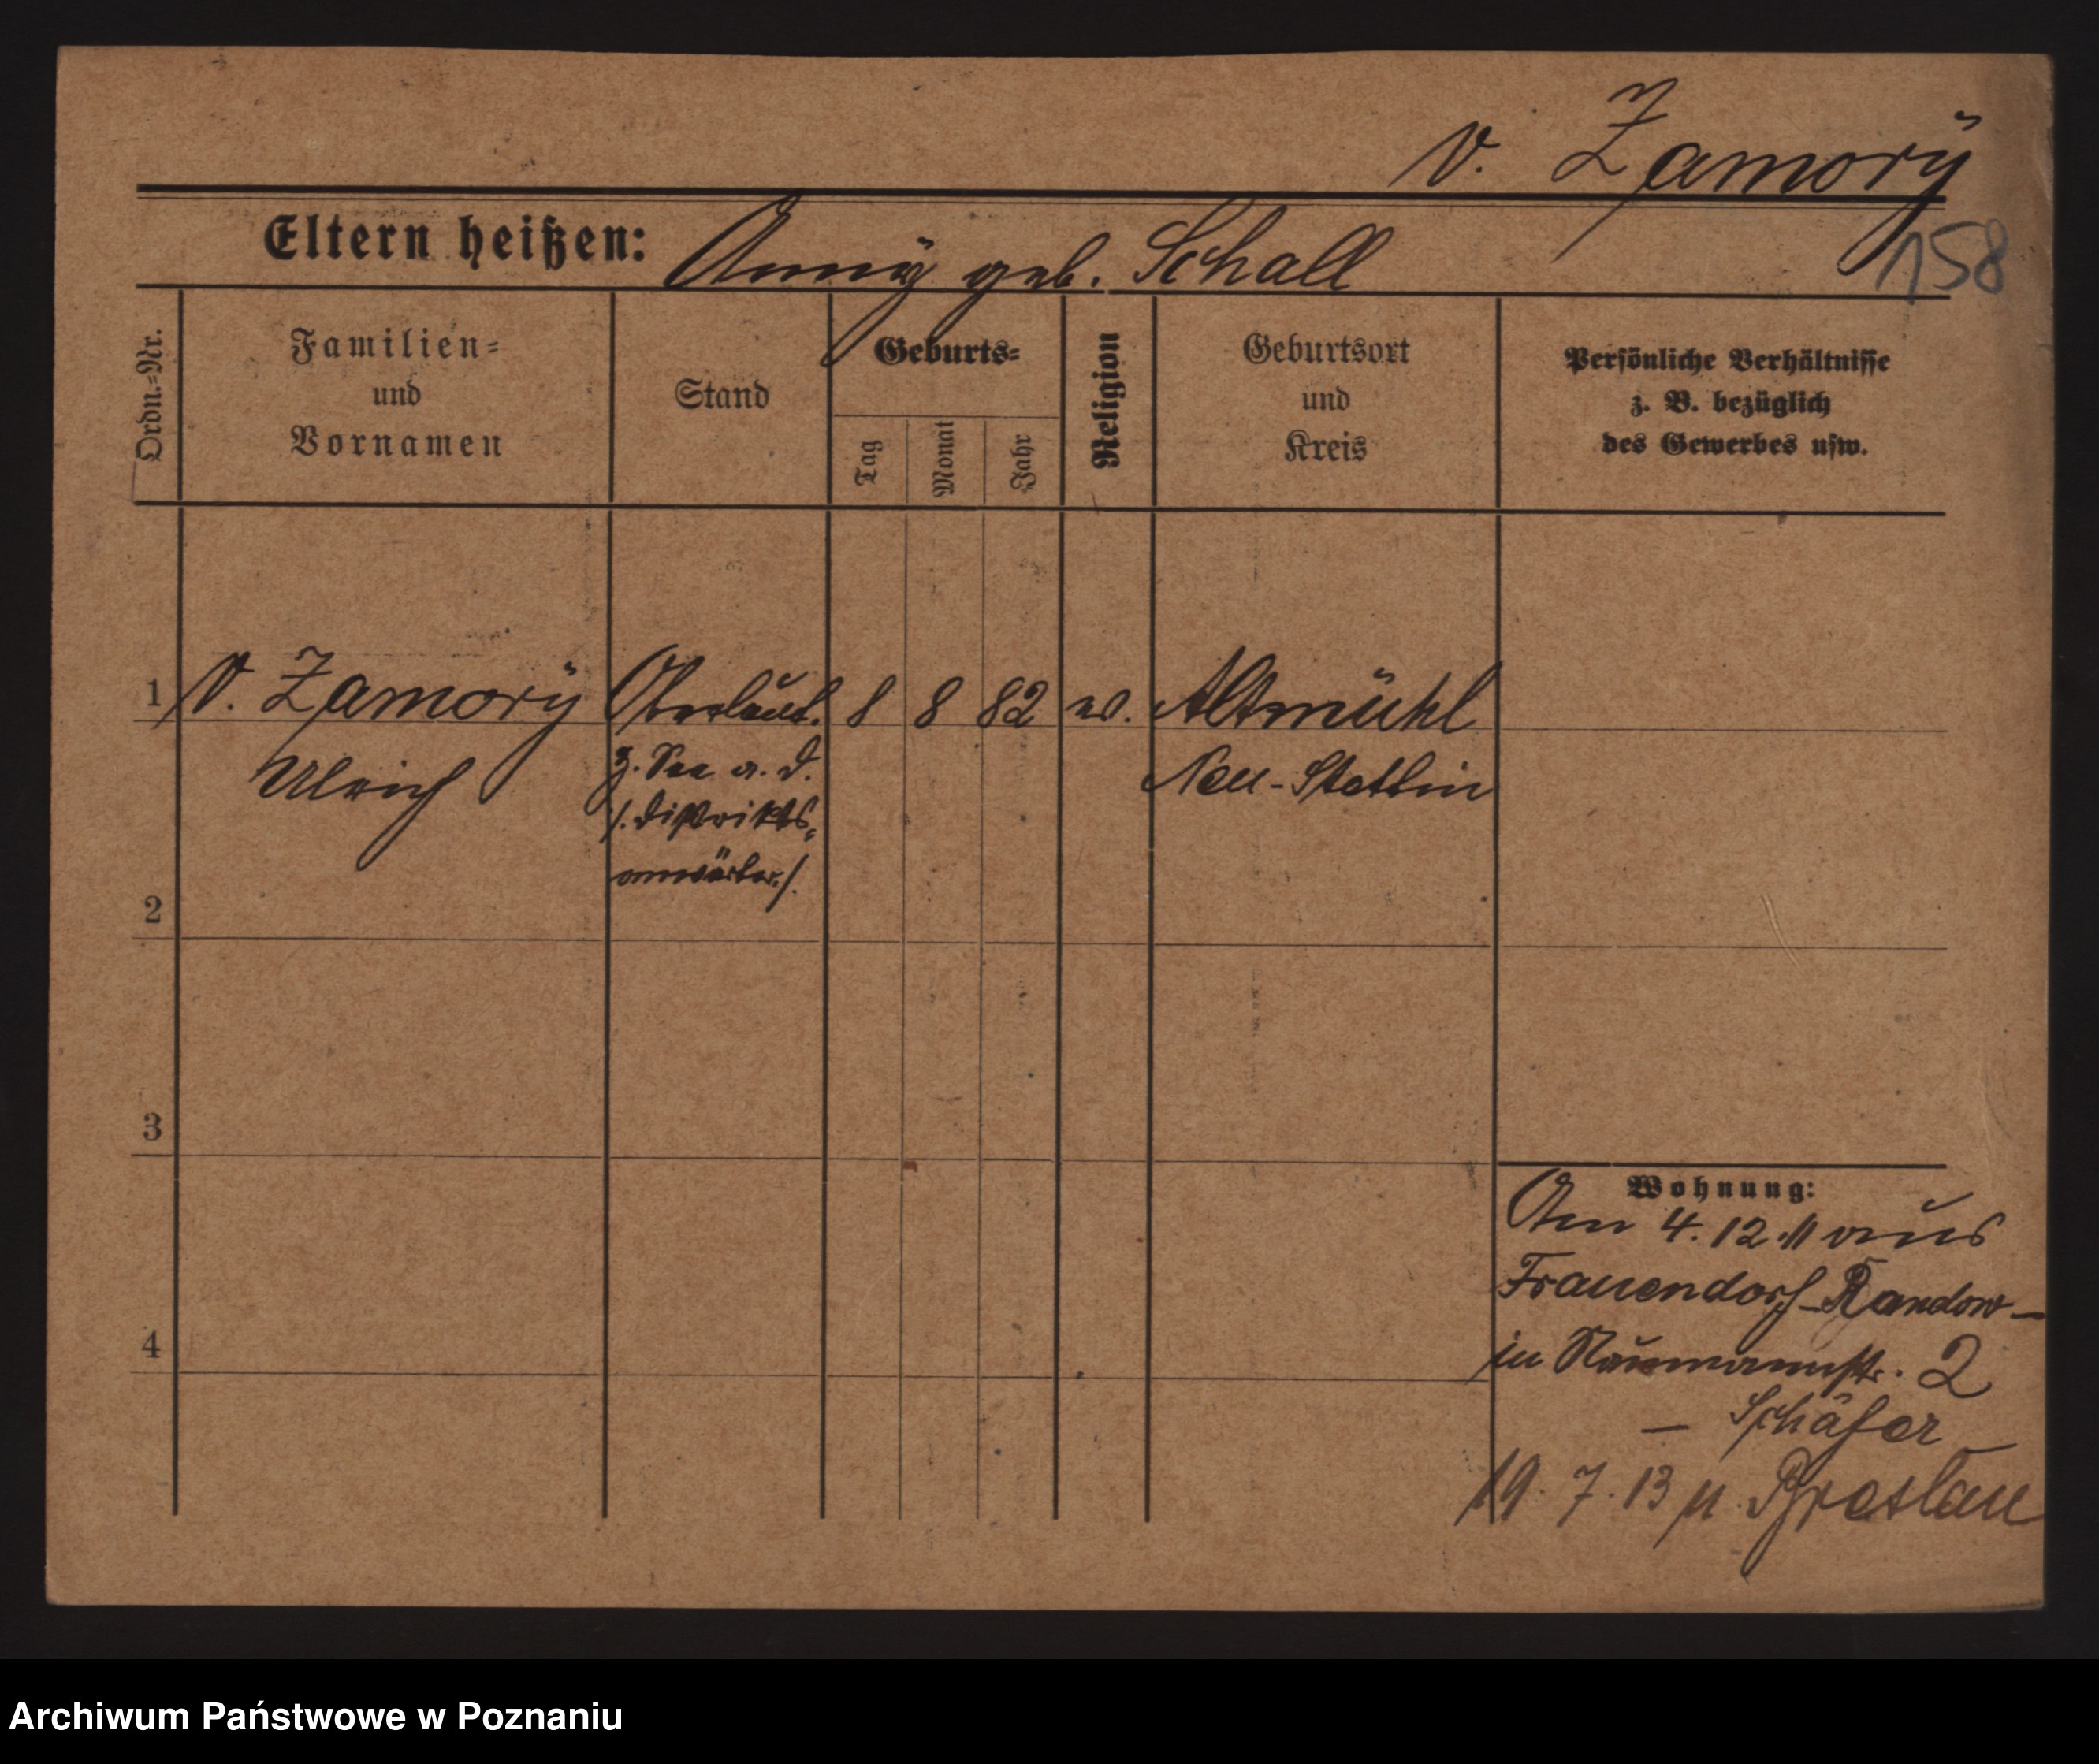 v. Zamorÿ
Eltern heißen: Annÿ geb. Schall
158
Ordn.=Nr.
Familien=
und
Vornamen
Stand
Geburts=
Tag
Monat
Jahr
Religion
Geburtsort
und
Kreis
Persönliche Verhältnisse
z. B. bezüglich
des Gewerbes usw.
1 v. Zamorÿ Oberleut. 8 8 82 ev. Altmühl
Ulrich z. See a. d. Neu-Stettin
/. Distrikts=
anwärter./.
2
3
4
Wohnung:
Am 4. 12. 11 aus
Frauendorf-Randow-
in Naumannstr. 2
— Schäfer
19. 7. 13 n. Breslau
Archiwum Państwowe w Poznaniu